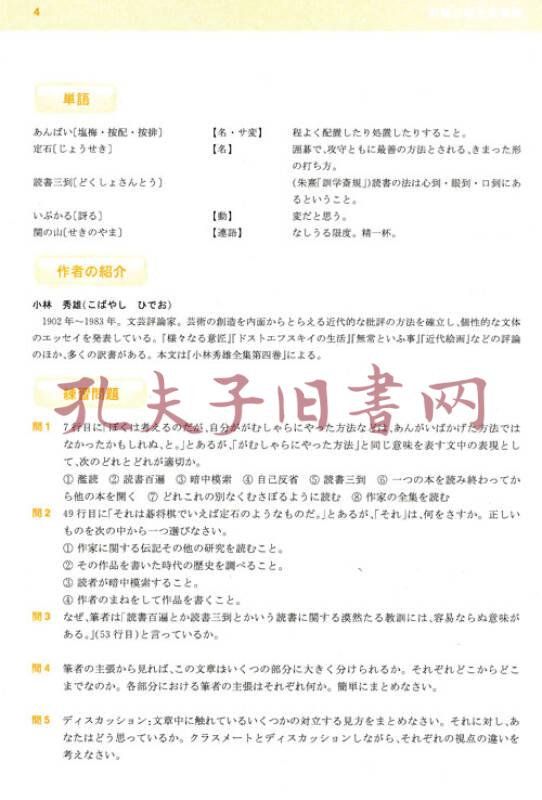 4
単語
あんばい[塩梅・按配・按排] 【名・サ変】 程よく配置したり処置したりすること。
定石[じょうせき] 【名】 囲碁で、攻守ともに最善の方法とされる、きまった形
の打ち方。
読書三到[どくしょさんとう] (朱熹「訓学斎規」)読書の法は心到・眼到・口到にあ
るということ。
いぶかる[訝る] 【動】 変だと思う。
関の山[せきのやま] 【連語】 なしうる限度。精一杯。
作者の紹介
小林 秀雄(こばやし ひでお)
1902年～1983年。文芸評論家。芸術の創造を内面からとらえる近代的な批評の方法を確立し、個性的な文体
のエッセイを発表している。『様々なる意匠』『ドストエフスキイの生活』『無常といふ事』『近代絵画』などの評論
のほか、多くの訳書がある。本文は『小林秀雄全集第四巻』による。
練習問題
孔夫子旧书网
問1 7行目に「ぼくは考えるのだが、自分ががむしゃらにやった方法などは、あんがいばかげた方法では
なかったかもしれぬ、と。」とあるが、「がむしゃらにやった方法」と同じ意味を表す文中の表現とし
て、次のどれとどれが適切か。
① 濫読 ② 読書百遍 ③ 暗中模索 ④ 自己反省 ⑤ 読書三到 ⑥ 一つの本を読み終わってか
ら他の本を開く ⑦ どれこれの別なくむさぼるように読む ⑧ 作家の全集を読む
問2 49行目に「それは碁将棋でいえば定石のようなものだ。」とあるが、「それ」は、何をさすか。正しい
ものを次の中から一つ選びなさい。
① 作家に関する伝記その他の研究を読むこと。
② その作品を書いた時代の歴史を調べること。
③ 読者が暗中模索すること。
④ 作者のまねをして作品を書くこと。
問3 なぜ、筆者は「読書百遍とか読書三到とかいう読書に関する漠然たる教訓には、容易ならぬ意味が
ある。」(53行目)と言っているか。
問4 筆者の主張から見れば、この文章はいくつの部分に大きく分けられるか。それぞれどこからどこ
までなのか。各部分における筆者の主張はそれぞれ何か。簡単にまとめなさい。
問5 ディスカッション:文章中に触れているいくつかの対立する見方をまとめなさい。それに対し、あ
なたはどう思っているか。クラスメートとディスカッションしながら、それぞれの視点の違いを
考えなさい。